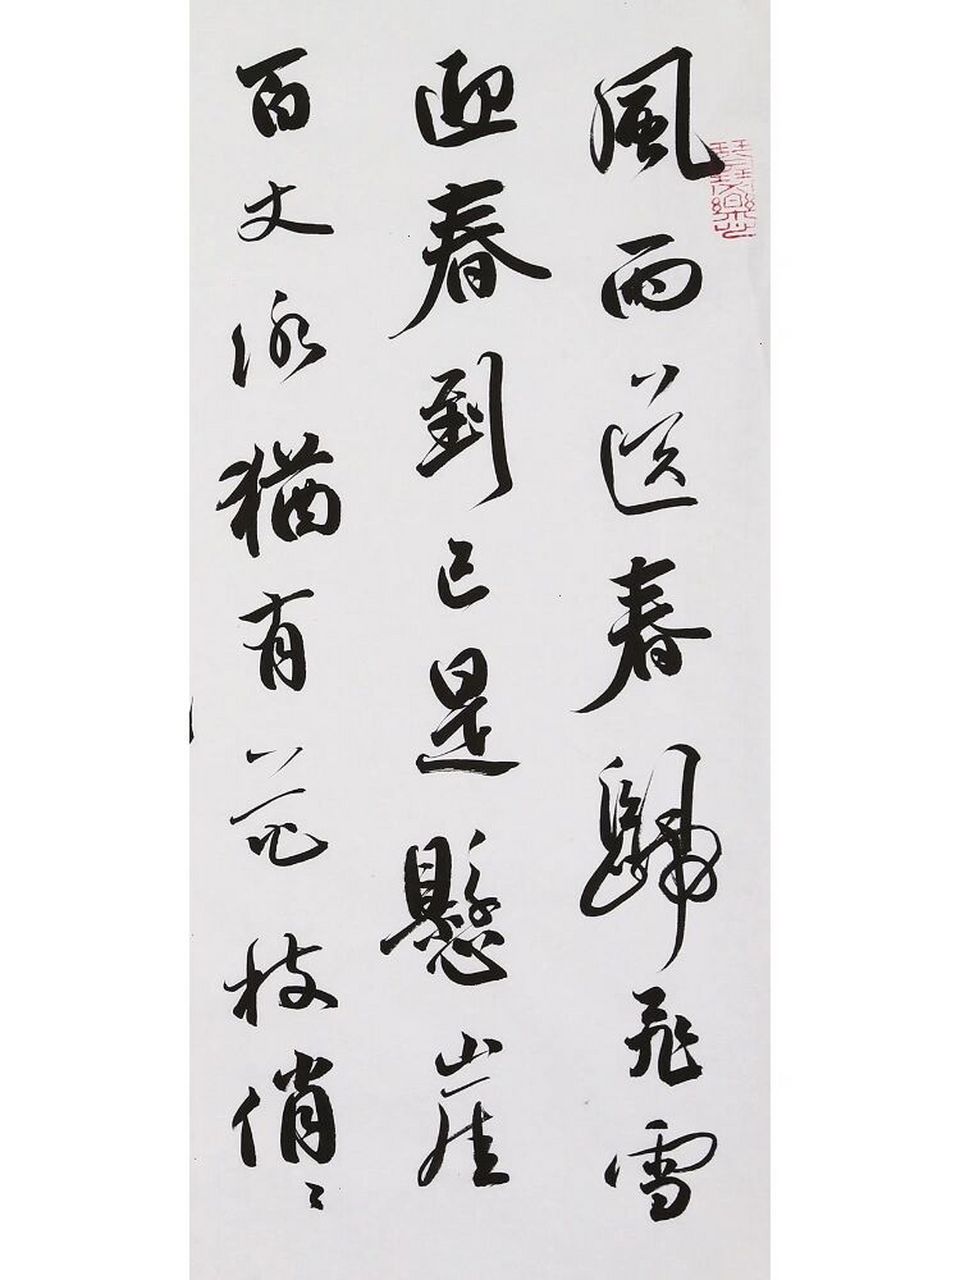 風雨送春歸飛雪
迎春到已是懸崖
百丈冰猶有花枝俏